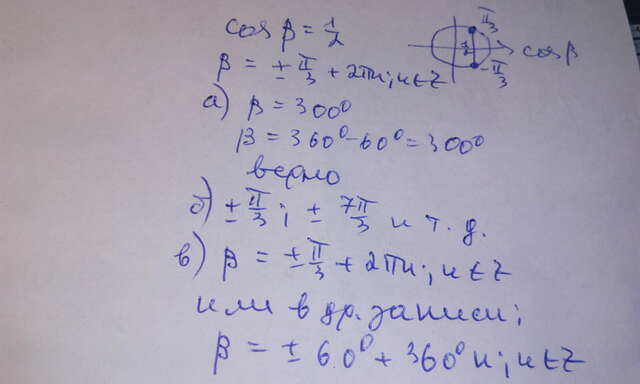 cos β = 1/2
π/3
1/2
cos β
-π/3
β = ± π/3 + 2πn; n ∈ Z
а) β = 300⁰
β = 360⁰ - 60⁰ = 300⁰
верно
б) ± π/3 ; ± 7π/3 и т. д.
в) β = ± π/3 + 2πn; n ∈ Z
или в др. записи;
β = ± 60⁰ + 360⁰ n; n ∈ Z